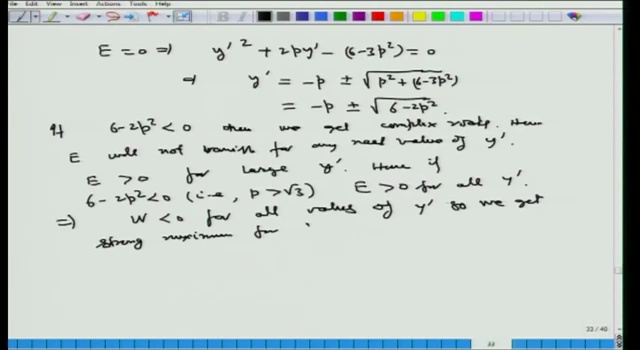 File Edit View Insert Actions Tools Help
E = 0 ⇒ y'² + 2py' - (6-3p²) = 0
⇒ y' = -p ± √p² + (6-3p²)
= -p ± √6-2p²
If 6-2p² < 0 then we get complex roots. Hence
E will not vanish for any real value of y'.
E > 0 for large y'. Hence if
6-2p² < 0 (i.e, p > √3) E > 0 for all y'.
⇒ W < 0 for all values of y' so we get
strong maximum for
33 / 40
33